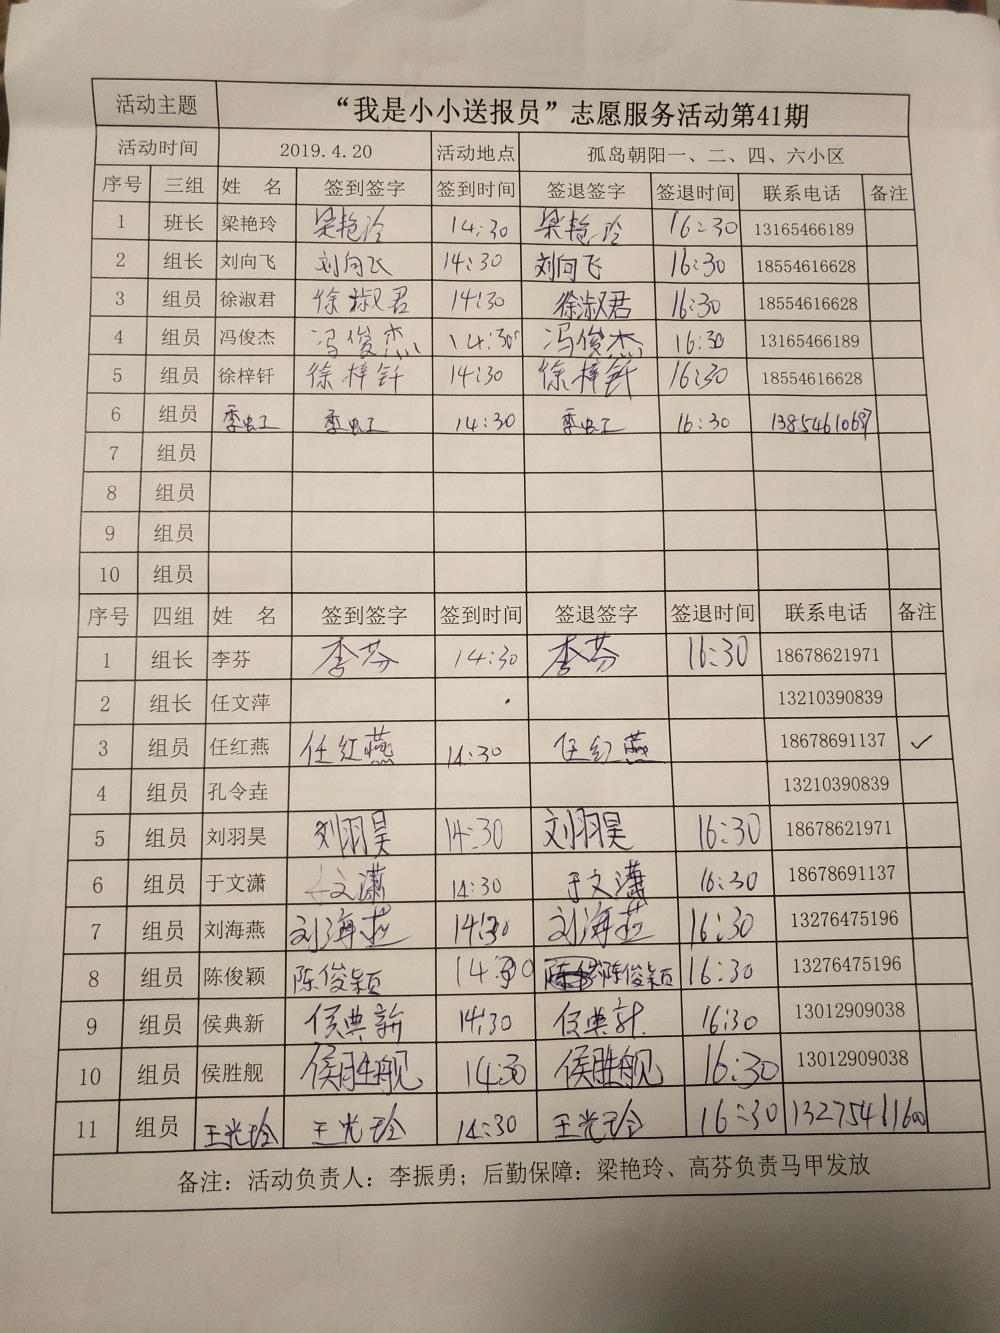 活动主题 “我是小小送报员”志愿服务活动第41期
活动时间 2019.4.20 活动地点 孤岛朝阳一、二、四、六小区
序号 三组 姓 名 签到签字 签到时间 签退签字 签退时间 联系电话 备注
1 班长 梁艳玲 梁艳玲 14:30 梁艳玲 16:30 13165466189
2 组长 刘向飞 刘向飞 14:30 刘向飞 16:30 18554616628
3 组员 徐淑君 徐淑君 14:30 徐淑君 16:30 18554616628
4 组员 冯俊杰 冯俊杰 14:30 冯俊杰 16:30 13165466189
5 组员 徐梓钎 徐梓钎 14:30 徐梓钎 16:30 18554616628
6 组员 季虹 季虹 14:30 季虹 16:30
7 组员
8 组员
9 组员
10 组员
序号 四组 姓 名 签到签字 签到时间 签退签字 签退时间 联系电话 备注
1 组长 李芬 李芬 14:30 李芬 16:30 18678621971
2 组长 任文萍 13210390839
3 组员 任红燕 任红燕 14:30 任红燕 18678691137 ✓
4 组员 孔令垚 13210390839
5 组员 刘羽昊 刘羽昊 14:30 刘羽昊 16:30 18678621971
6 组员 于文潇 于文潇 14:30 于文潇 16:30 18678691137
7 组员 刘海燕 刘海燕 14:30 刘海燕 16:30 13276475196
8 组员 陈俊颖 陈俊颖 14:30 陈俊颖 16:30 13276475196
9 组员 侯典新 侯典新 14:30 侯典新 16:30 13012909038
10 组员 侯胜舰 侯胜舰 14:30 侯胜舰 16:30 13012909038
11 组员 王光玲 王光玲 14:30 王光玲 16:30
备注：活动负责人：李振勇；后勤保障：梁艳玲、高芬负责马甲发放